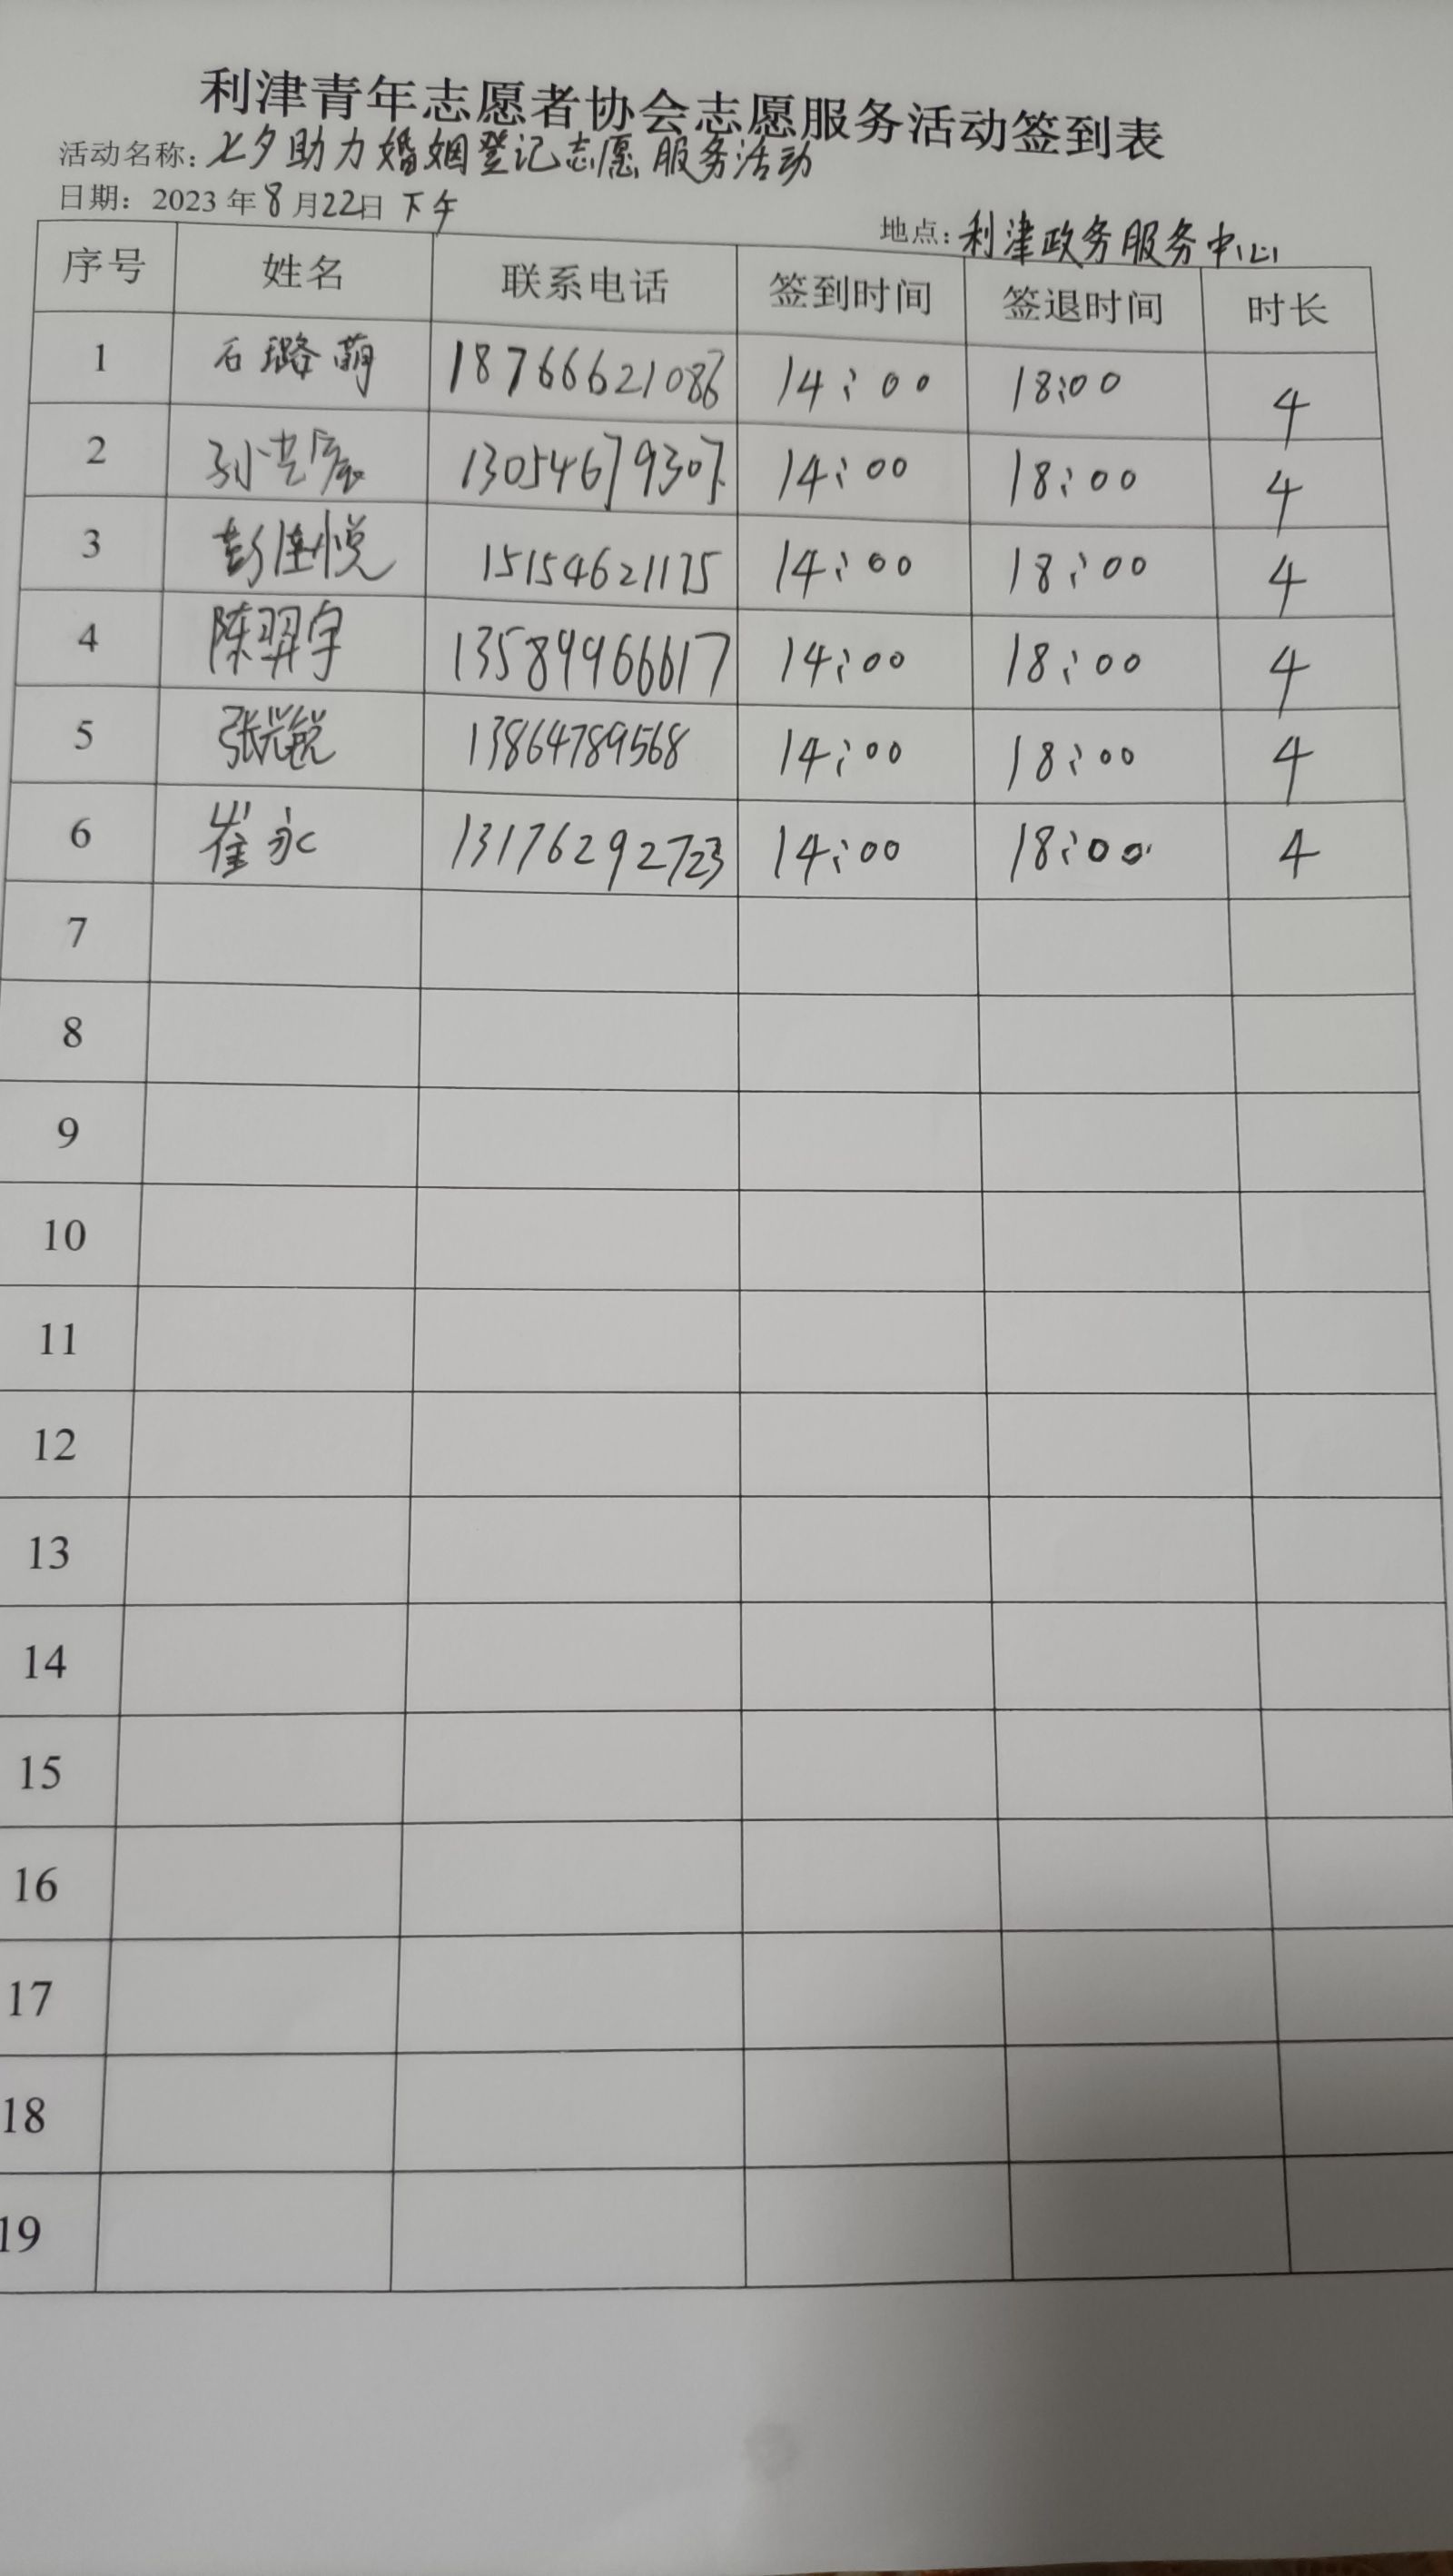 利津青年志愿者协会志愿服务活动签到表
活动名称：七夕助力婚姻登记志愿服务活动
日期：2023年8月22日下午
地点：利津政务服务中心
序号 姓名 联系电话 签到时间 签退时间 时长
1 石璐萌 18766621086 14:00 18:00 4
2 孙 13054679307 14:00 18:00 4
3 彭佳悦 15154621175 14:00 18:00 4
4 陈羿宇 13589966617 14:00 18:00 4
5 张 13864789568 14:00 18:00 4
6 崔永 13176292723 14:00 18:00 4
7
8
9
10
11
12
13
14
15
16
17
18
19